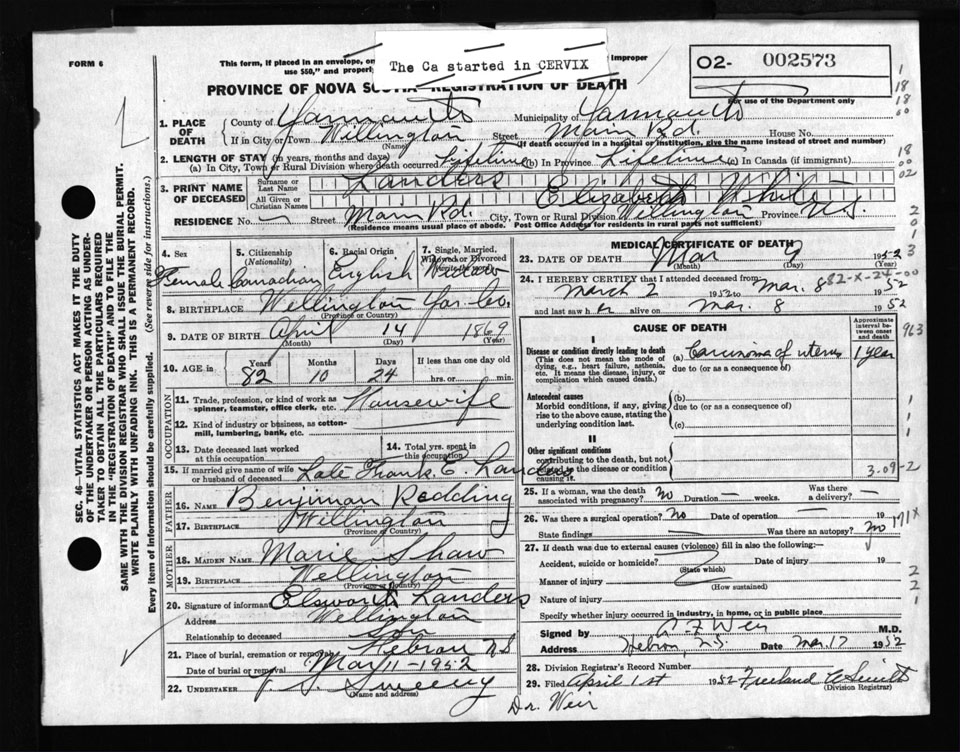 FORM 6
This form, if placed in an envelope, on
Improper
use $50," and property
The Ca started in CERVIX
O2- 002573
For use of the Department only
PROVINCE OF NOVA SCOTIA REGISTRATION OF DEATH
1. PLACE OF DEATH
County of Yarmouth Municipality of Yarmouth
If in City or Town Wellington (Name) Street Main Rd. House No.
(If death occurred in a hospital or institution, give the name instead of street and number)
2. LENGTH OF STAY (in years, months and days)
(a) In City, Town or Rural Division where death occurred Lifetime (b) In Province Lifetime (c) In Canada (if immigrant)
3. PRINT NAME OF DECEASED
Surname or Last Name Landers
All Given or Christian Names Elizabeth White
RESIDENCE No. Street Main Rd. City, Town or Rural Division Wellington Province N.S.
(Residence means usual place of abode. Post Office Address for residents in rural parts not sufficient)
4. Sex Female
5. Citizenship (Nationality) Canadian
6. Racial Origin English
7. Single, Married, Widowed or Divorced (write the word) Widow
8. BIRTHPLACE Wellington Yar. Co.
(Province or Country)
9. DATE OF BIRTH April 14 1869
(Month) (Day) (Year)
10. AGE in Years 82 Months 10 Days 24 If less than one day old hrs. or min.
OCCUPATION
11. Trade, profession, or kind of work as spinner, teamster, office clerk, etc. Housewife
12. Kind of industry or business, as cotton-mill, lumbering, bank, etc.
13. Date deceased last worked at this occupation
14. Total yrs. spent in this occupation
15. If married give name of wife or husband of deceased Late Frank E. Landers
FATHER
16. NAME Benjiman Redding
17. BIRTHPLACE Wellington
(Province or Country)
MOTHER
18. MAIDEN NAME Marie Shaw
19. BIRTHPLACE Wellington
(Province or Country)
20. Signature of informant Elsworth Landers
Address Wellington
Relationship to deceased Son
21. Place of burial, cremation or removal Hebron N.S
Date of burial or removal Mar 11-1952
22. UNDERTAKER Sweeny
(Name and address)
SEC. 46—VITAL STATISTICS ACT MAKES IT THE DUTY OF THE UNDERTAKER OR PERSON ACTING AS UNDERTAKER TO OBTAIN ALL THE PARTICULARS REQUIRED IN THE "REGISTRATION OF DEATH" AND TO FILE THE SAME WITH THE DIVISION REGISTRAR WHO SHALL ISSUE THE BURIAL PERMIT. WRITE PLAINLY WITH UNFADING INK. THIS IS A PERMANENT RECORD.
Every item of information should be carefully supplied. (See reverse side for instructions.)
MEDICAL CERTIFICATE OF DEATH
23. DATE OF DEATH Mar 9 1952
(Month) (Day) (Year)
24. I HEREBY CERTIFY that I attended deceased from:
82-X-24-00
March 2 1952 to Mar. 8 1952
and last saw her alive on Mar. 8 1952
CAUSE OF DEATH
Approximate interval between onset and death
I
Disease or condition directly leading to death (a) Carcinoma of uterus 1 year
(This does not mean the mode of dying, e.g., heart failure, asthenia, etc. It means the disease, injury, or complication which caused death.)
due to (or as a consequence of)
Antecedent causes
Morbid conditions, if any, giving rise to the above cause, stating the underlying condition last.
(b)
due to (or as a consequence of)
(c)
II
Other significant conditions contributing to the death, but not related to the disease or condition causing it.
3-09-2
25. If a woman, was the death associated with pregnancy? No Duration — weeks. Was there a delivery? —
26. Was there a surgical operation? No Date of operation — 19
State findings Was there an autopsy? No
171X
27. If death was due to external causes (violence) fill in also the following:—
Accident, suicide or homicide? Date of injury 19
(State which)
Manner of injury
(How sustained)
Nature of injury
Specify whether injury occurred in industry, in home, or in public place
Signed by A F Weir M.D.
Address Hebron, N.S. Date Mar. 17 1952
28. Division Registrar's Record Number
29. Filed April 1st 1952
(Division Registrar)
Dr. Weir
963